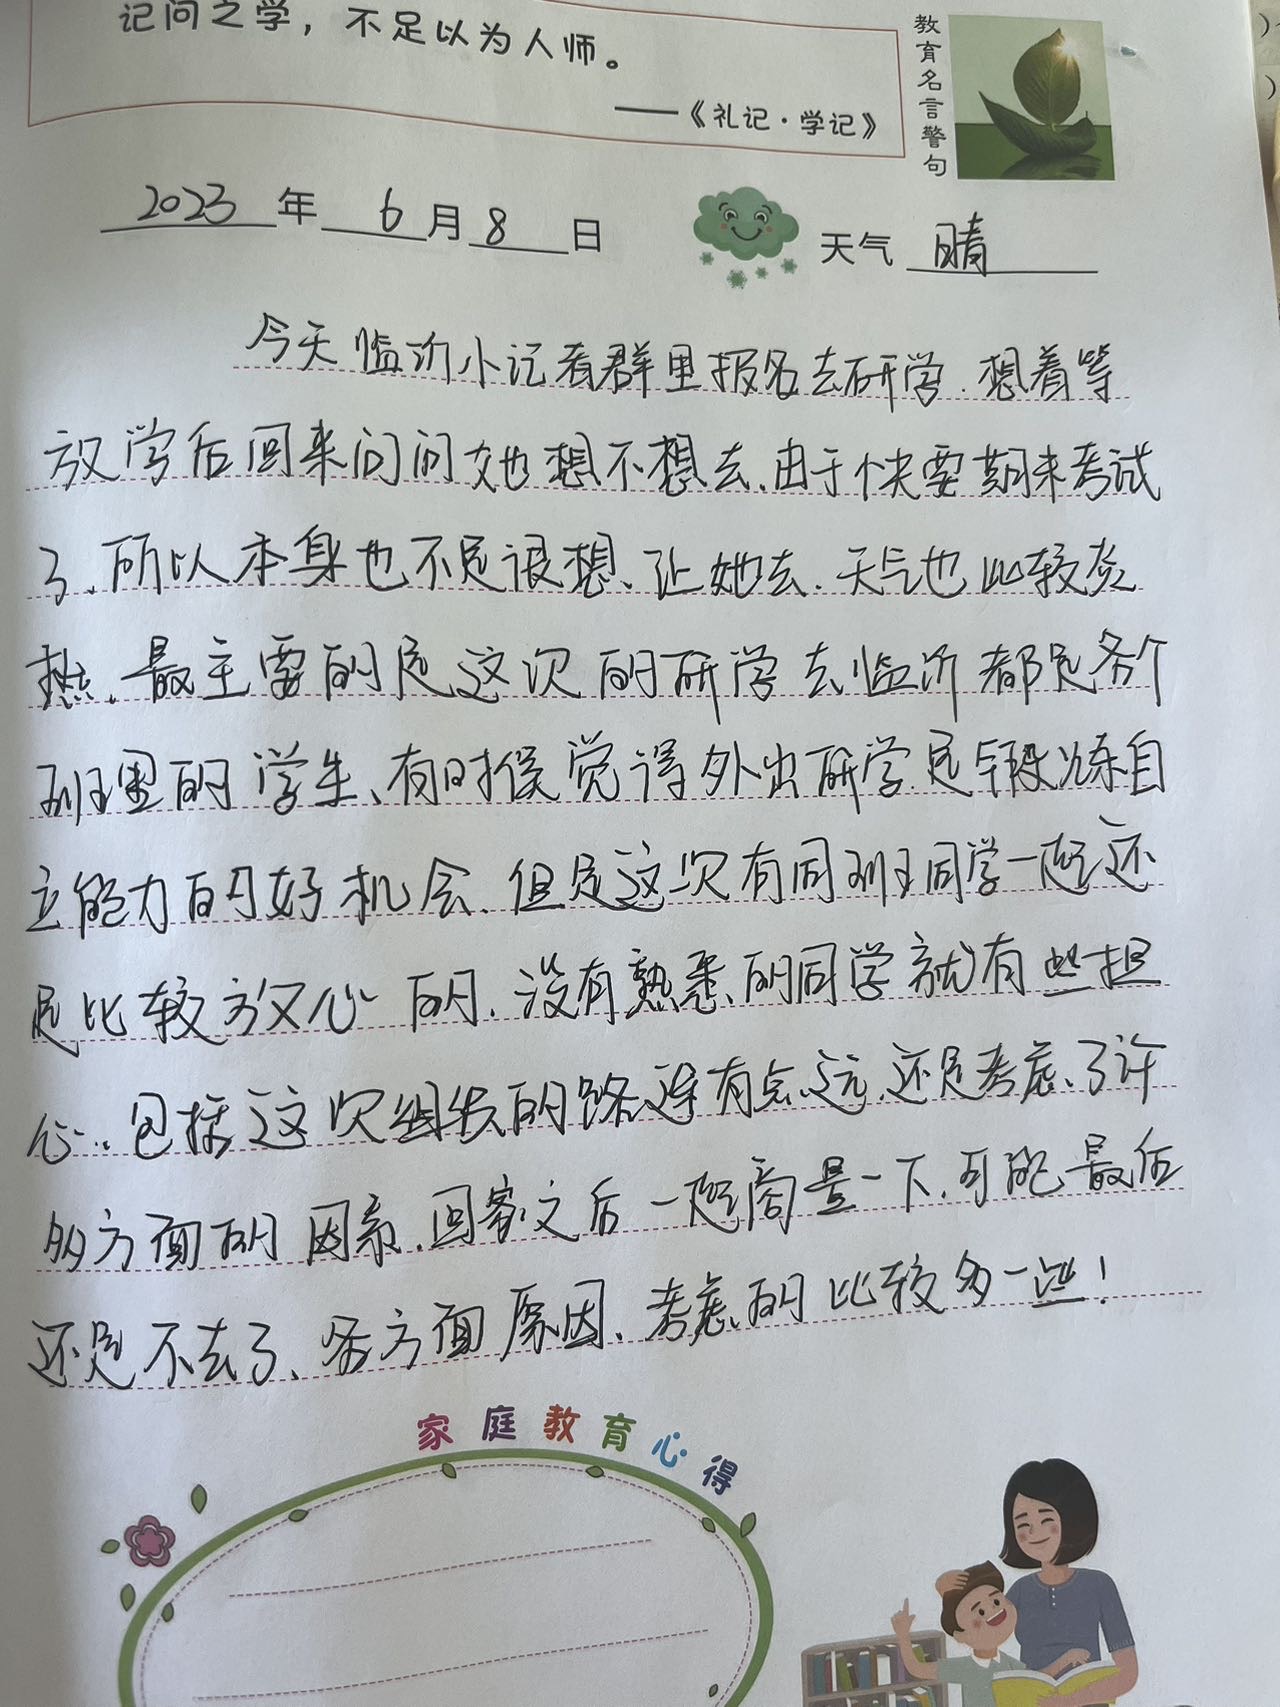 记问之学，不足以为人师。
——《礼记·学记》
教育名言警句
2023年6月8日
天气 晴
今天临沂小记者群里报名去研学.想着等
放学后回来问问她想不想去.由于快要期末考试
了、所以本身也不是很想、让她去.天气也比较炎
热.最主要的是这次的研学去临沂都是各个
班里的学生、有时候觉得外出研学是锻炼自
立能力的好机会.但是这次有同班同学一起还
是比较放心的.没有熟悉的同学就有些担
心..包括这次组织的路途有点远.还是考虑了许
多方面的因素.回家之后一起商量一下.可能最后
还是不去了、各方面原因、考虑的比较多一些！
家庭教育心得